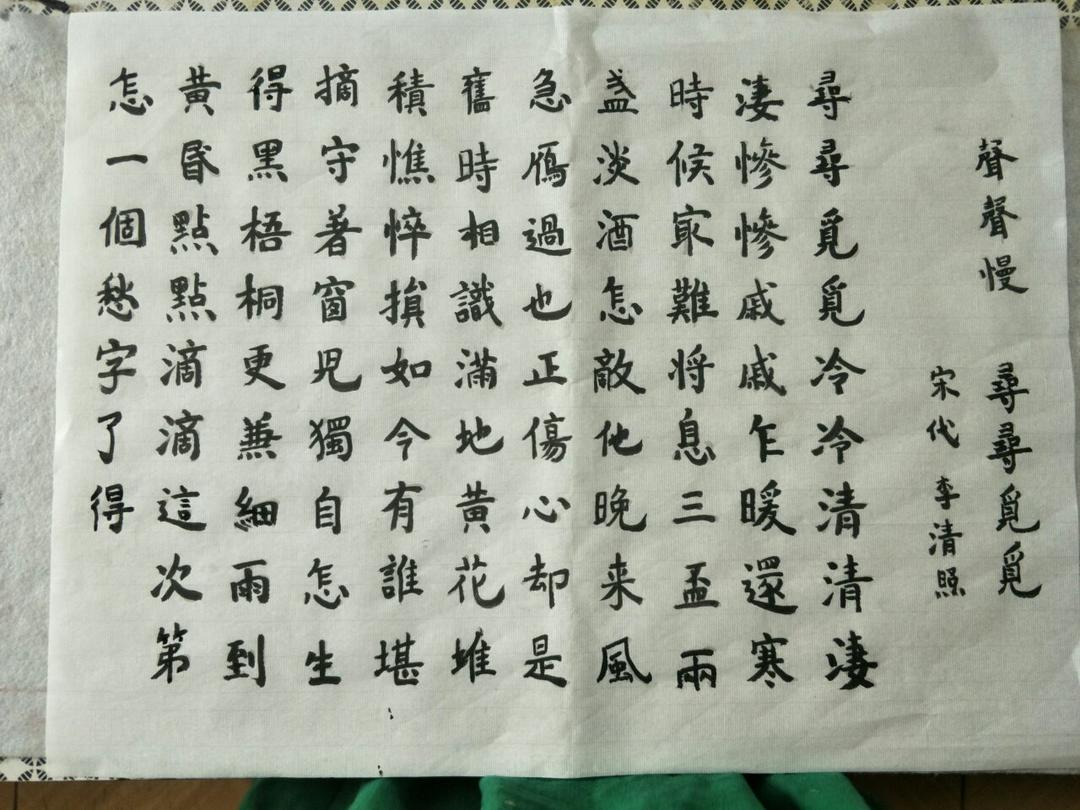 聲聲慢 尋尋覓覓
宋代 李清照
尋尋覓覓冷冷清清淒
淒慘慘戚戚乍暖還寒
時候冣難將息三盃兩
盏淡酒怎敵他晚来風
急鴈過也正傷心却是
舊時相識滿地黃花堆
積憔悴損如今有誰堪
摘守著窗兒獨自怎生
得黑梧桐更兼細雨到
黃昏點點滴滴這次第
怎一個愁字了得